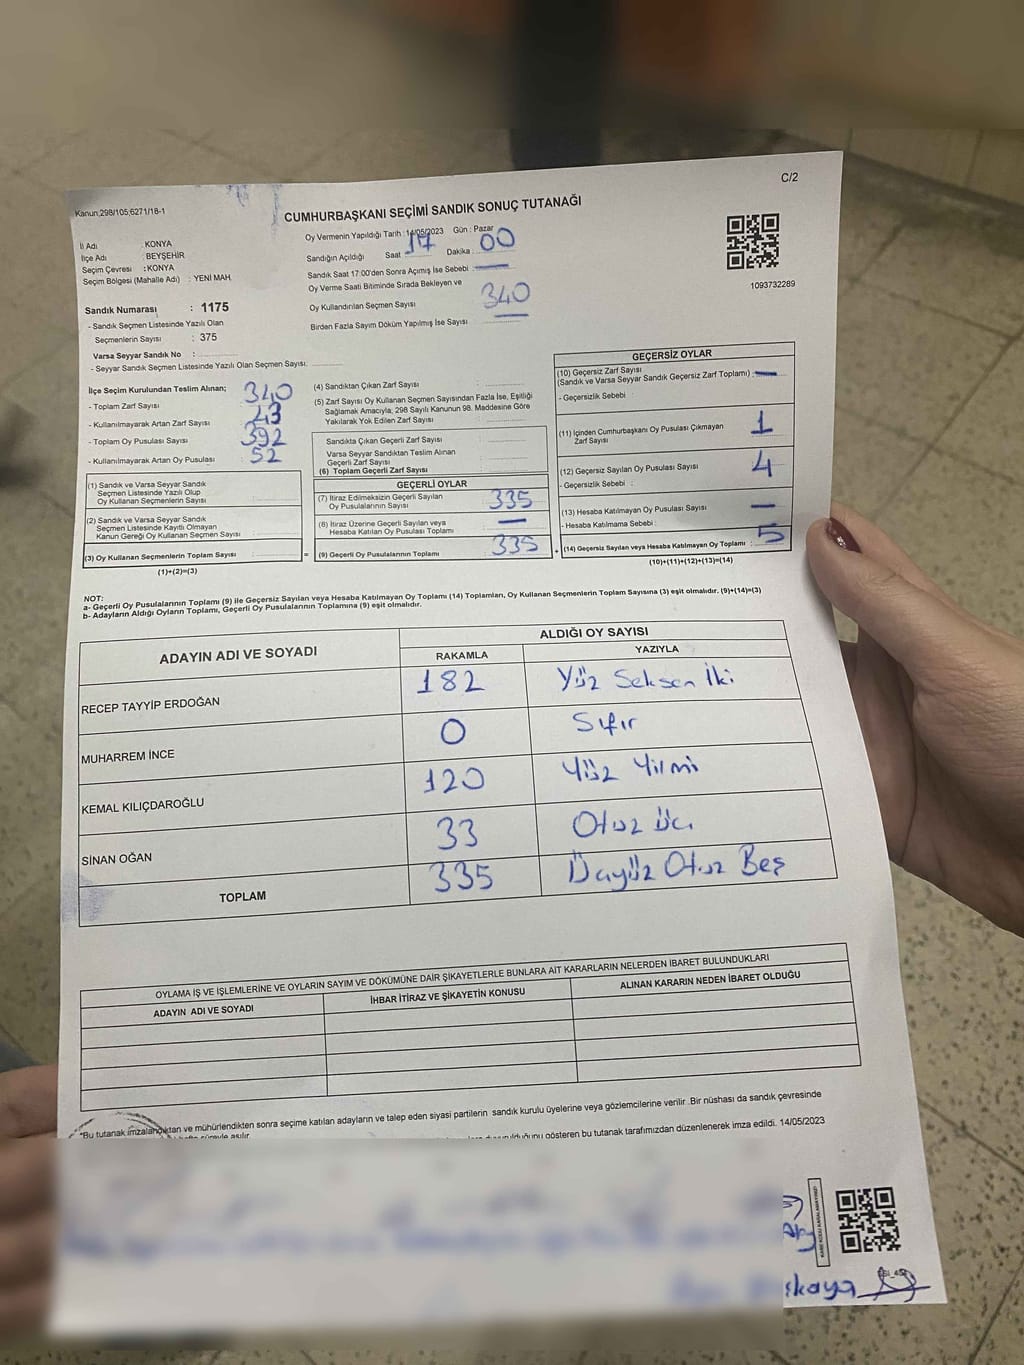 C/2
Kanun;298/105;6271/18-1
CUMHURBAŞKANI SEÇİMİ SANDIK SONUÇ TUTANAĞI
İl Adı : KONYA
İlçe Adı : BEYŞEHİR
Seçim Çevresi : KONYA
Seçim Bölgesi (Mahalle Adı) : YENİ MAH.
Sandık Numarası : 1175
- Sandık Seçmen Listesinde Yazılı Olan
Seçmenlerin Sayısı : 375
Varsa Seyyar Sandık No :
- Seyyar Sandık Seçmen Listesinde Yazılı Olan Seçmen Sayısı:
Oy Vermenin Yapıldığı Tarih : 14/05/2023 Gün : Pazar
Sandığın Açıldığı Saat 17 Dakika : 00
Sandık Saat 17:00'den Sonra Açımış İse Sebebi :
Oy Verme Saati Bitiminde Sırada Bekleyen ve
Oy Kullandırılan Seçmen Sayısı 340
Birden Fazla Sayım Döküm Yapılmış İse Sayısı
1093732289
İlçe Seçim Kurulundan Teslim Alınan;
- Toplam Zarf Sayısı 340
- Kullanılmayarak Artan Zarf Sayısı
- Toplam Oy Pusulası Sayısı 392
- Kullanılmayarak Artan Oy Pusulası : 52
(1) Sandık ve Varsa Seyyar Sandık
Seçmen Listesinde Yazılı Olup
Oy Kullanan Seçmenlerin Sayısı
(2) Sandık ve Varsa Seyyar Sandık
Seçmen Listesinde Kayıtlı Olmayan
Kanun Gereği Oy Kullanan Seçmen Sayısı
(3) Oy Kullanan Seçmenlerin Toplam Sayısı :
(1)+(2)=(3)
=
(4) Sandıktan Çıkan Zarf Sayısı :
(5) Zarf Sayısı Oy Kullanan Seçmen Sayısından Fazla İse, Eşitliği
Sağlamak Amacıyla; 298 Sayılı Kanunun 98. Maddesine Göre
Yakılarak Yok Edilen Zarf Sayısı :
Sandıkta Çıkan Geçerli Zarf Sayısı
Varsa Seyyar Sandıktan Teslim Alınan
Geçerli Zarf Sayısı
(6) Toplam Geçerli Zarf Sayısı
GEÇERLİ OYLAR
(7) İtiraz Edilmeksizin Geçerli Sayılan
Oy Pusulalarının Sayısı 335
(8) İtiraz Üzerine Geçerli Sayılan veya
Hesaba Katılan Oy Pusulası Toplamı : —
(9) Geçerli Oy Pusulalarının Toplamı 335
+
GEÇERSİZ OYLAR
(10) Geçersiz Zarf Sayısı
(Sandık ve Varsa Seyyar Sandık Geçersiz Zarf Toplamı) : —
- Geçersizlik Sebebi :
(11) İçinden Cumhurbaşkanı Oy Pusulası Çıkmayan
Zarf Sayısı 1
(12) Geçersiz Sayılan Oy Pusulası Sayısı 4
- Geçersizlik Sebebi :
(13) Hesaba Katılmayan Oy Pusulası Sayısı —
- Hesaba Katılmama Sebebi :
(14) Geçersiz Sayılan veya Hesaba Katılmayan Oy Toplamı : 5
(10)+(11)+(12)+(13)=(14)
NOT:
a- Geçerli Oy Pusulalarının Toplamı (9) ile Geçersiz Sayılan veya Hesaba Katılmayan Oy Toplamı (14) Toplamları, Oy Kullanan Seçmenlerin Toplam Sayısına (3) eşit olmalıdır. (9)+(14)=(3)
b- Adayların Aldığı Oyların Toplamı, Geçerli Oy Pusulalarının Toplamına (9) eşit olmalıdır.
ADAYIN ADI VE SOYADI
ALDIĞI OY SAYISI
RAKAMLA YAZIYLA
RECEP TAYYİP ERDOĞAN 182 Yüz Seksen İki
MUHARREM İNCE 0 Sıfır
KEMAL KILIÇDAROĞLU 120 Yüz Yirmi
SİNAN OĞAN 33 Otuz üç
TOPLAM 335 Üçyüz Otuz Beş
OYLAMA İŞ VE İŞLEMLERİNE VE OYLARIN SAYIM VE DÖKÜMÜNE DAİR ŞİKAYETLERLE BUNLARA AİT KARARLARIN NELERDEN İBARET BULUNDUKLARI
ADAYIN ADI VE SOYADI İHBAR İTİRAZ VE ŞİKAYETİN KONUSU ALINAN KARARIN NEDEN İBARET OLDUĞU
*Bu tutanak imzalandıktan ve mühürlendikten sonra seçime katılan adayların ve talep eden siyasi partilerin sandık kurulu üyelerine veya gözlemcilerine verilir .Bir nüshası da sandık çevresinde
süreyle asılır.
gösteren bu tutanak tarafımızdan düzenlenerek imza edildi. 14/05/2023
skaya